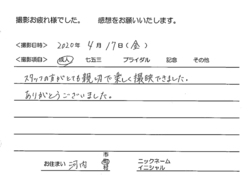 撮影お疲れ様でした。　感想をお願いいたします。
<撮影日時> 2020年 4月 17日(金)
<撮影項目> 成人 七五三 ブライダル 記念 その他
スタッフの方がとても親切で楽しく撮影できました。
ありがとうございました。
お住まい 河内 市 町 村 ニックネーム イニシャル